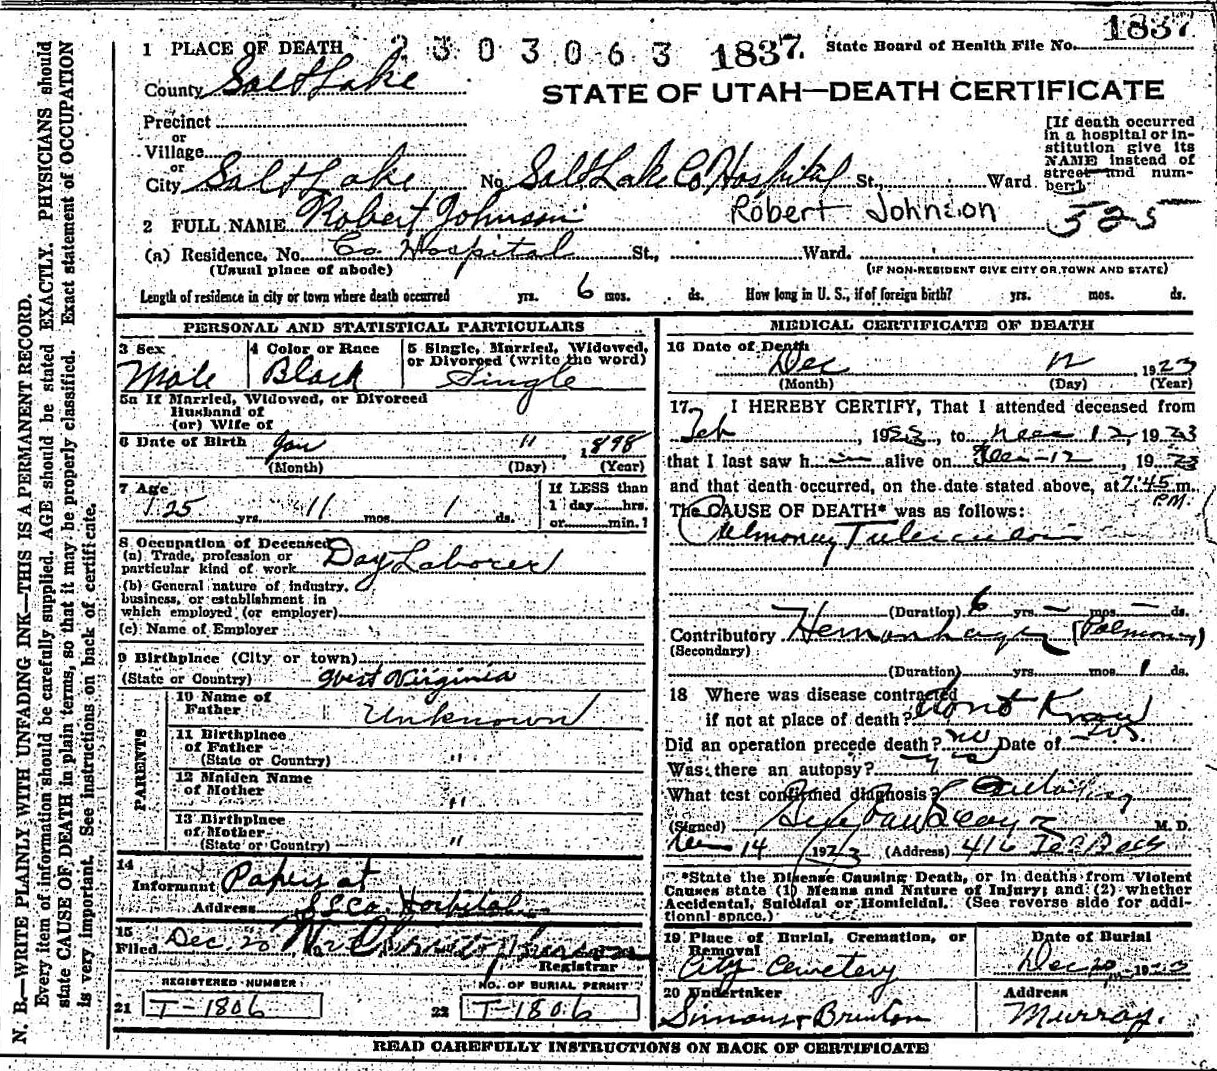 1837
1 PLACE OF DEATH 2303063 1837 State Board of Health File No.
County Salt Lake
STATE OF UTAH—DEATH CERTIFICATE
Precinct
or
Village
or
City Salt Lake No. Salt Lake Co Hospital St., Ward
[If death occurred in a hospital or institution give its NAME instead of street and number.]
2 FULL NAME Robert Johnson Robert Johnson 525
(a) Residence. No. Co Hospital St., Ward.
(Usual place of abode) (IF NON-RESIDENT GIVE CITY OR TOWN AND STATE)
Length of residence in city or town where death occurred yrs. 6 mos. ds. How long in U. S., if of foreign birth? yrs. mos. ds.
PERSONAL AND STATISTICAL PARTICULARS
3 Sex 4 Color or Race 5 Single, Married, Widowed, or Divorced (write the word)
Male Black Single
5a If Married, Widowed, or Divorced
Husband of
(or) Wife of
6 Date of Birth Jan 11, 1898
(Month) (Day) (Year)
7 Age If LESS than
25 yrs. 11 mos. 1 ds. 1 day hrs.
or min.
8 Occupation of Deceased
(a) Trade, profession or particular kind of work Day Laborer
(b) General nature of industry, business, or establishment in which employed (or employer)
(c) Name of Employer
9 Birthplace (City or town)
(State or Country) West Virginia
PARENTS
10 Name of Father Unknown
11 Birthplace of Father (State or Country) "
12 Maiden Name of Mother "
13 Birthplace of Mother (State or Country) "
14
Informant Papers at
Address S L Co. Hospital
15
Filed Dec. 20
Registrar
REGISTERED NUMBER NO. OF BURIAL PERMIT
21 T-1806 22 T-1806
MEDICAL CERTIFICATE OF DEATH
16 Date of Death
Dec 12 1923
(Month) (Day) (Year)
17 I HEREBY CERTIFY, That I attended deceased from
Feb, 1923, to Dec 12, 1923
that I last saw h im alive on Dec-12, 1923
and that death occurred, on the date stated above, at 7:45 m.
P.M.
The CAUSE OF DEATH* was as follows:
Pulmonary Tuberculosis
(Duration) 6 yrs. – mos. – ds.
Contributory Hemorrhage (Pulmonary)
(Secondary)
(Duration) yrs. mos. 1 ds.
18 Where was disease contracted
if not at place of death? Dont Know
Did an operation precede death? no Date of
Was there an autopsy? yes
What test confirmed diagnosis?
(Signed) M. D.
Dec 14 1923 (Address) 416
*State the Disease Causing Death, or in deaths from Violent Causes state (1) Means and Nature of Injury; and (2) whether Accidental, Suicidal or Homicidal. (See reverse side for additional space.)
19 Place of Burial, Cremation, or Removal Date of Burial
City Cemetery Dec 20, 1923
20 Undertaker Address
Simons & Brinton Murray.
READ CAREFULLY INSTRUCTIONS ON BACK OF CERTIFICATE
N. B.—WRITE PLAINLY WITH UNFADING INK—THIS IS A PERMANENT RECORD.
Every item of information should be carefully supplied. AGE should be stated EXACTLY. PHYSICIANS should
state CAUSE OF DEATH in plain terms, so that it may be properly classified. Exact statement of OCCUPATION
is very important. See instructions on back of certificate.